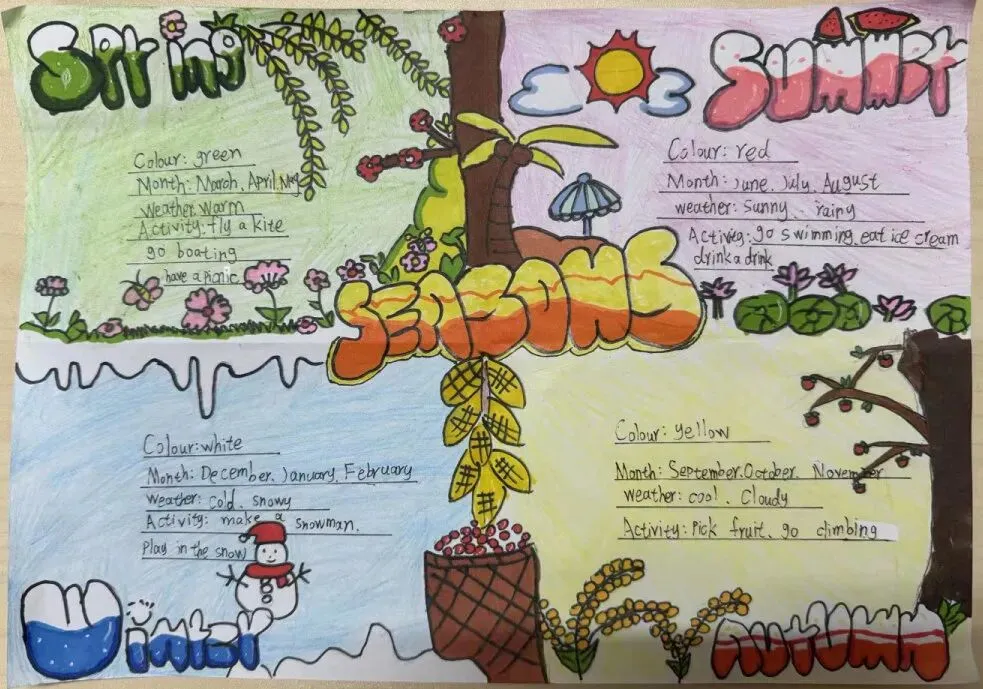 Spring
Colour: green
Month: March, April, May
Weather: warm
Activity: fly a kite
go boating
have a picnic
Summer
Colour: red
Month: June, July, August
weather: Sunny, rainy
Activity: go swimming, eat ice cream
drink a drink
SEASONS
Colour: white
Month: December, January, February
Weather: cold, snowy
Activity: make a snowman,
Play in the snow
Winter
Colour: yellow
Month: September, October, November
weather: cool, Cloudy
Activity: Pick fruit, go climbing
AUTUMN